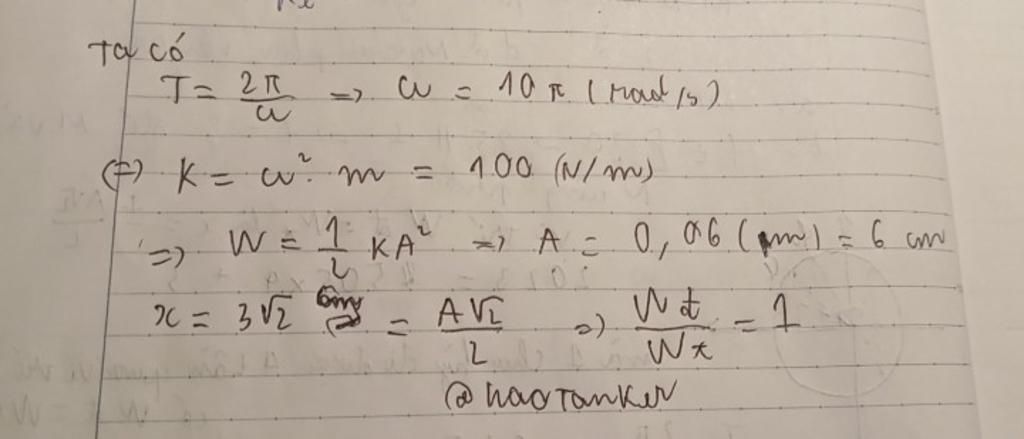 Ta có
T = 2π/ω => ω = 10π (rad/s)
(=) K = ω². m = 100 (N/m)
=> W = 1/2 KA² => A = 0,06 (m) = 6 cm
x = 3√2 = A√2/2 => Wt/Wt = 1
@haotanker